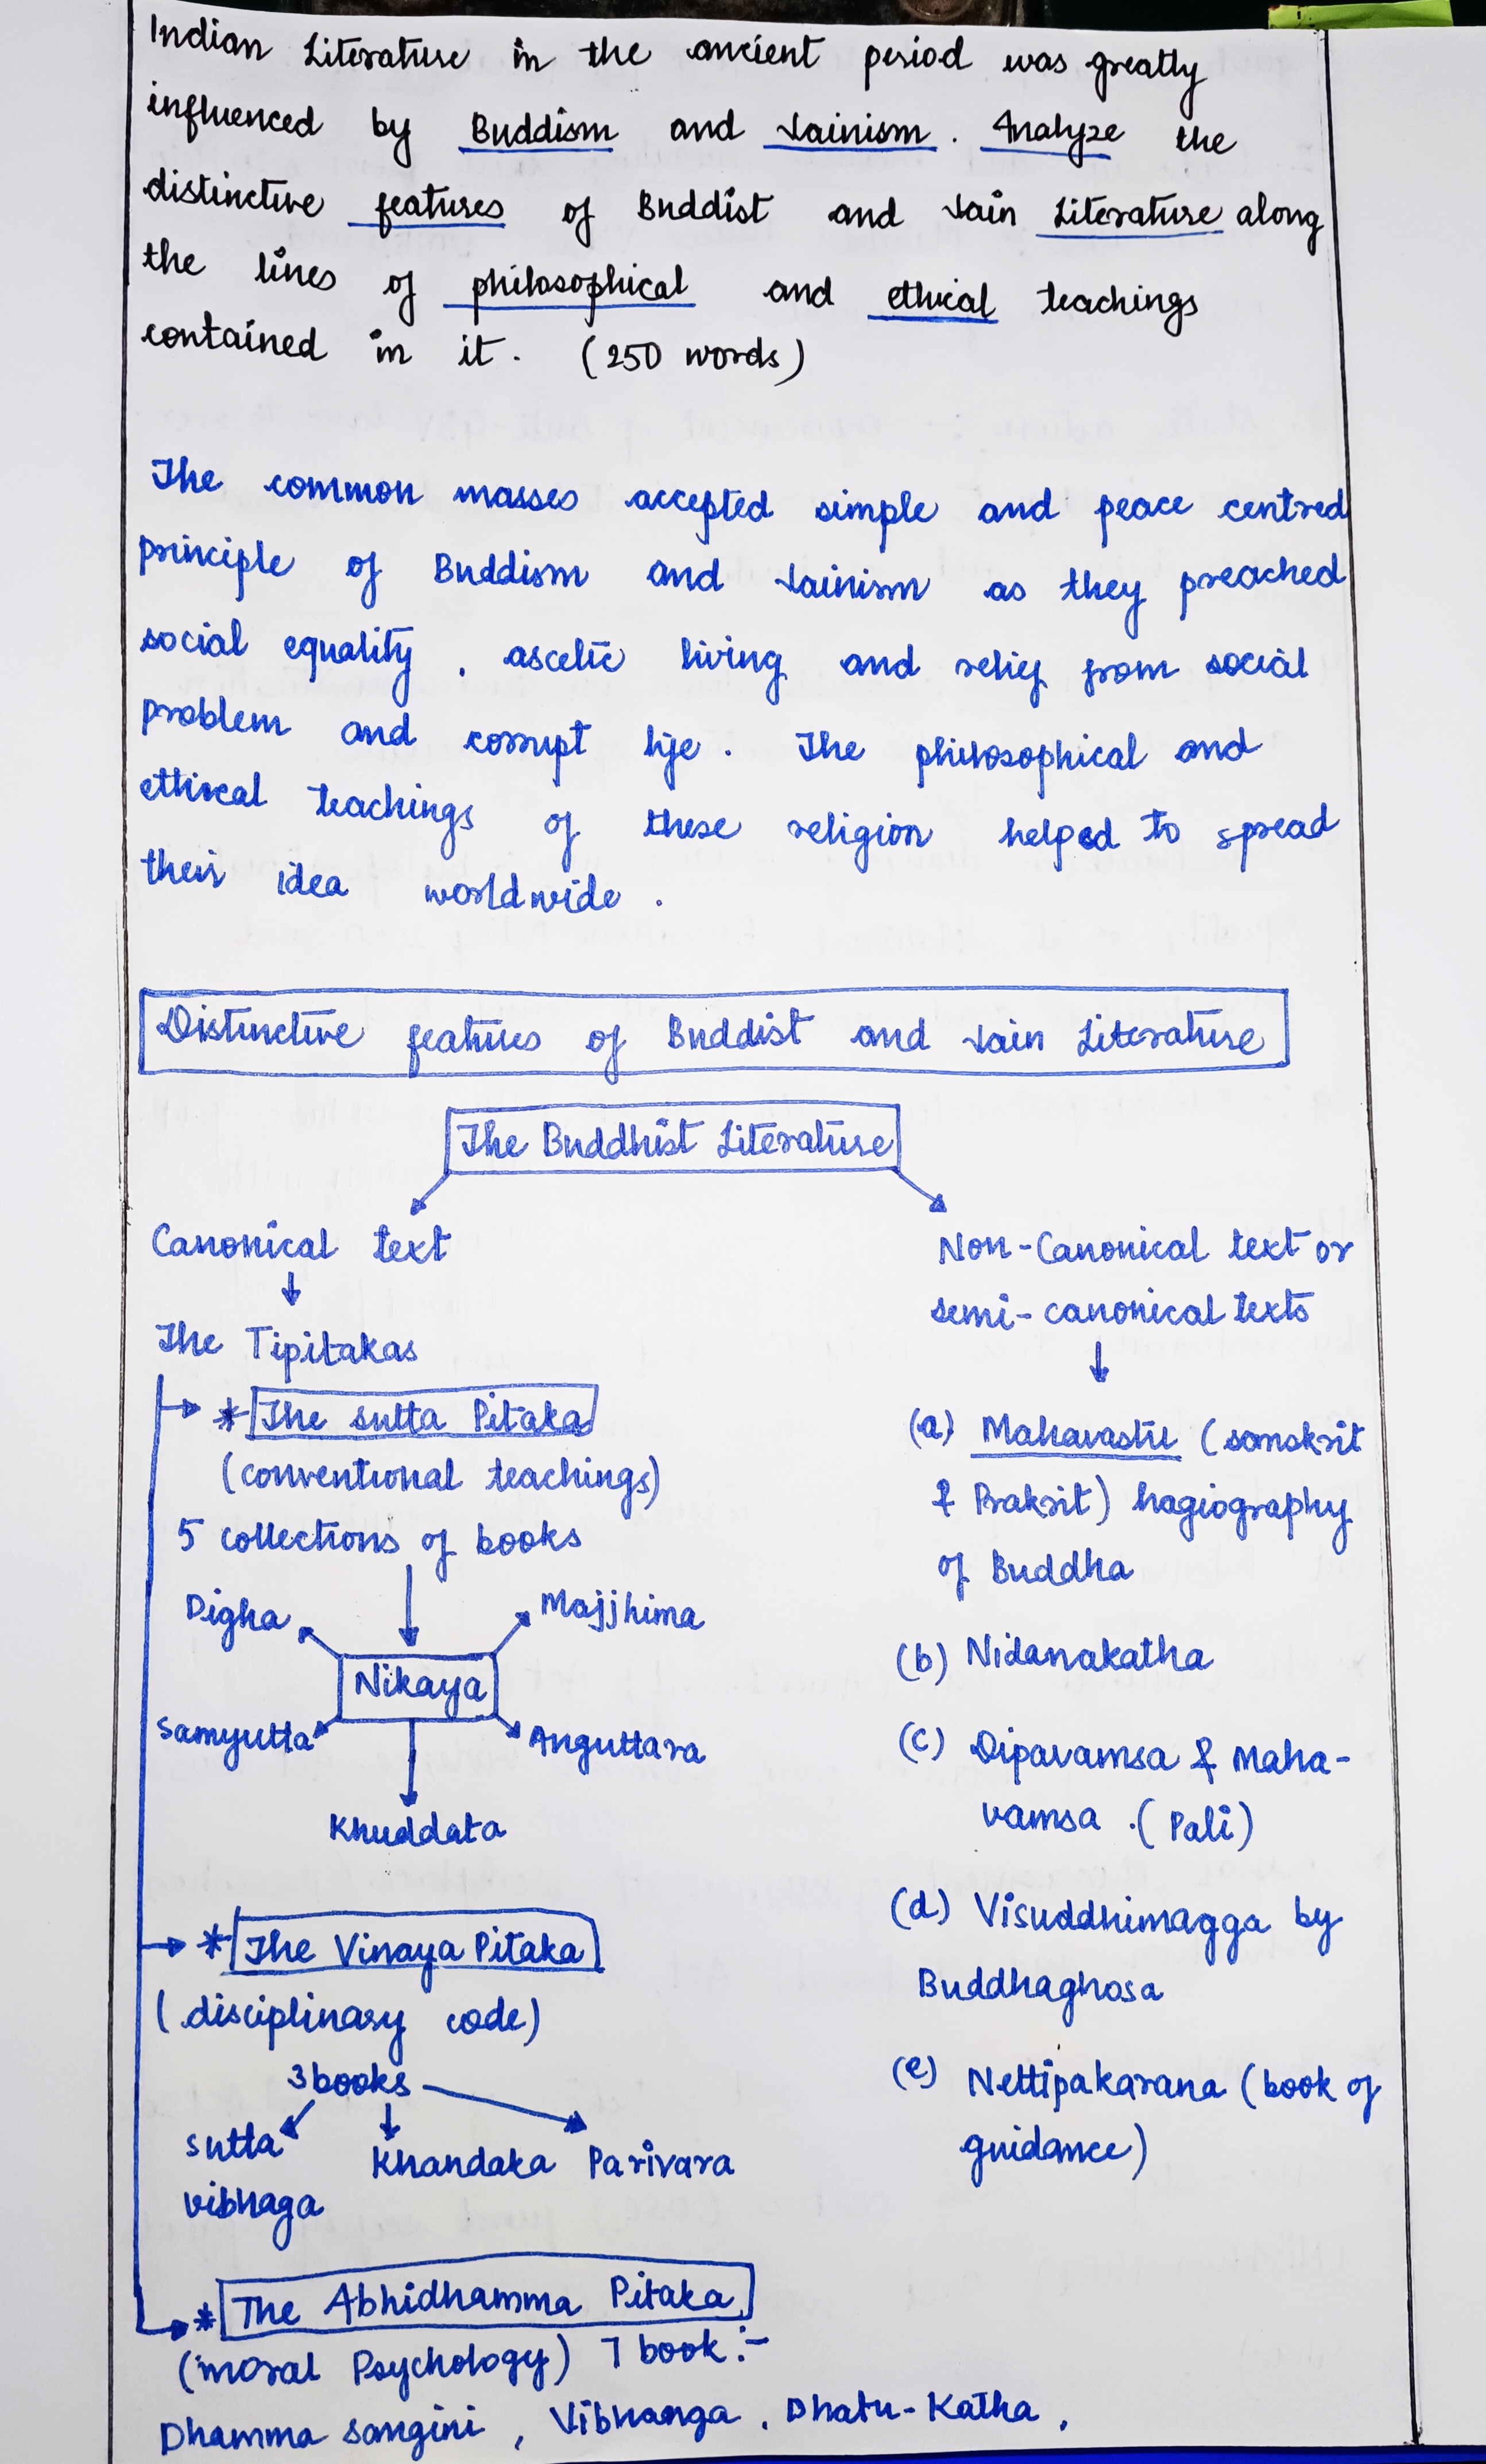 Indian Literature in the ancient period was greatly
influenced by Buddism and Jainism. Analyze the
distinctive features of Buddist and Jain Literature along
the lines of philosophical and ethical teachings
contained in it. (250 words)
The common masses accepted simple and peace centred
principle of Buddism and Jainism as they preached
social equality, ascetic living and relief from social
problem and corrupt life. The philosophical and
ethical teachings of these religion helped to spread
their idea worldwide.
Distinctive features of Buddist and Jain Literature
The Buddhist Literature
Canonical text
The Tipitakas
* The Sutta Pitaka
(conventional teachings)
5 collections of books
Digha
Majjhima
Nikaya
Samyutta
Anguttara
Khuddata
* The Vinaya Pitaka
(disciplinary code)
3 books
Sutta
vibhaga
Khandaka
Parivara
* The Abhidhamma Pitaka
(moral Psychology) 7 book :-
Dhamma sangini, Vibhanga, Dhatu-Katha,
Non-Canonical text or
semi-canonical texts
(a) Mahavastu (sanskrit
& Prakrit) hagiography
of Buddha
(b) Nidanakatha
(c) Dipavamsa & Maha-
vamsa. (Pali)
(d) Visuddhimagga by
Buddhaghosa
(e) Nettipakarana (book of
guidance)